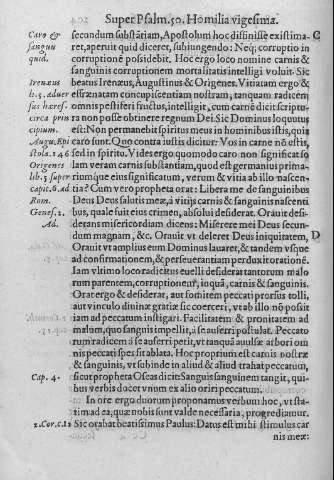 Super Psalm. 50. Homilia vigesima.
Caro & sanguis quid.
secundum substãtiam, Apostolum hoc diffinisse existima-
C
ret, aperuit quid diceret, subiungendo: Neq; corruptio in
corruptionẽ possidebit. Hoc ergo loco nomine carnis &
sanguinis corruptionem mortalitatis intelligi voluit. Sic
Irenæus li. 5. aduersus hæres. circa principium.
beatus Irenæus, Augustinus & Origenes. Vitiatam ergo &
effrænatam concupiscentiam nostram, tanquam radicem
omnis pestiferi fructus, intelligit, cum carnẽ dicit scriptu-
ra non posse obtinere regnum Dei. Sic Dominus loquutus
est: Non permanebit spiritus meus in hominibus istis, quia
Aug. Epistola. 146
caro sunt. Quo contra iustis dicitur: Vos in carne nõ estis,
sed in spiritu. Vides ergo quomodo caro non significat so
Origenes lib. 5 super capit. 6. ad Rom.
lam veram carnis substantiam, quod est germanius prima-
riumque eius significatum, verum & vitia ab illo nascen-
tia? Cum vero propheta orat: Libera me de sanguinibus
Deus Deus salutis meæ, à vitijs carnis & sanguinis nascenti
Genes. 2.
bus, quale fuit eius crimen, absolui desiderat. Orauit desi-
Ad.
derans misericordiam dicens: Miserere mei Deus secun-
dum magnam, &c. Orauit vt deleret Deus iniquitatem,
D
Orauit vt amplius eum Dominus lauaret, & tandem vsque
ad confirmationem, & perseuerantiam perduxit orationẽ.
Iam vltimo loco radicitus euelli desiderat tantorum malo
rum parentem, corruptionem, inquã, carnis & sanguinis.
Orat ergo & desiderat, aut fomitem peccati prorsus tolli,
aut vinculo diuinæ gratiæ sic coerceri, vt ab illo nõ possit
iam ad peccatum instigari. Facilitatem & pronitatem ad
malum, quo sanguis impellit, à se auferri postulat. Peccato
rum radicem à se auferri petit, vt tanquã auulsæ arbori om
nis peccati spes sit ablata. Hoc proprium est carnis nostræ
& sanguinis, vt subinde in aliud & aliud trahat peccatum,
Cap. 4.
sicut propheta Oseas dicit: Sanguis sanguinem tangit, qui-
bus verbis docet vnum ex alio oriri peccatum.
In ore ergo duorum proponamus verbum hoc, vt sta-
tim ad ea, quæ nobis sunt valde necessaria, progrediamur.
2. Cor. c. 12
Sic orabat beatissimus Paulus: Datus est mihi stimulus car
nis meæ: